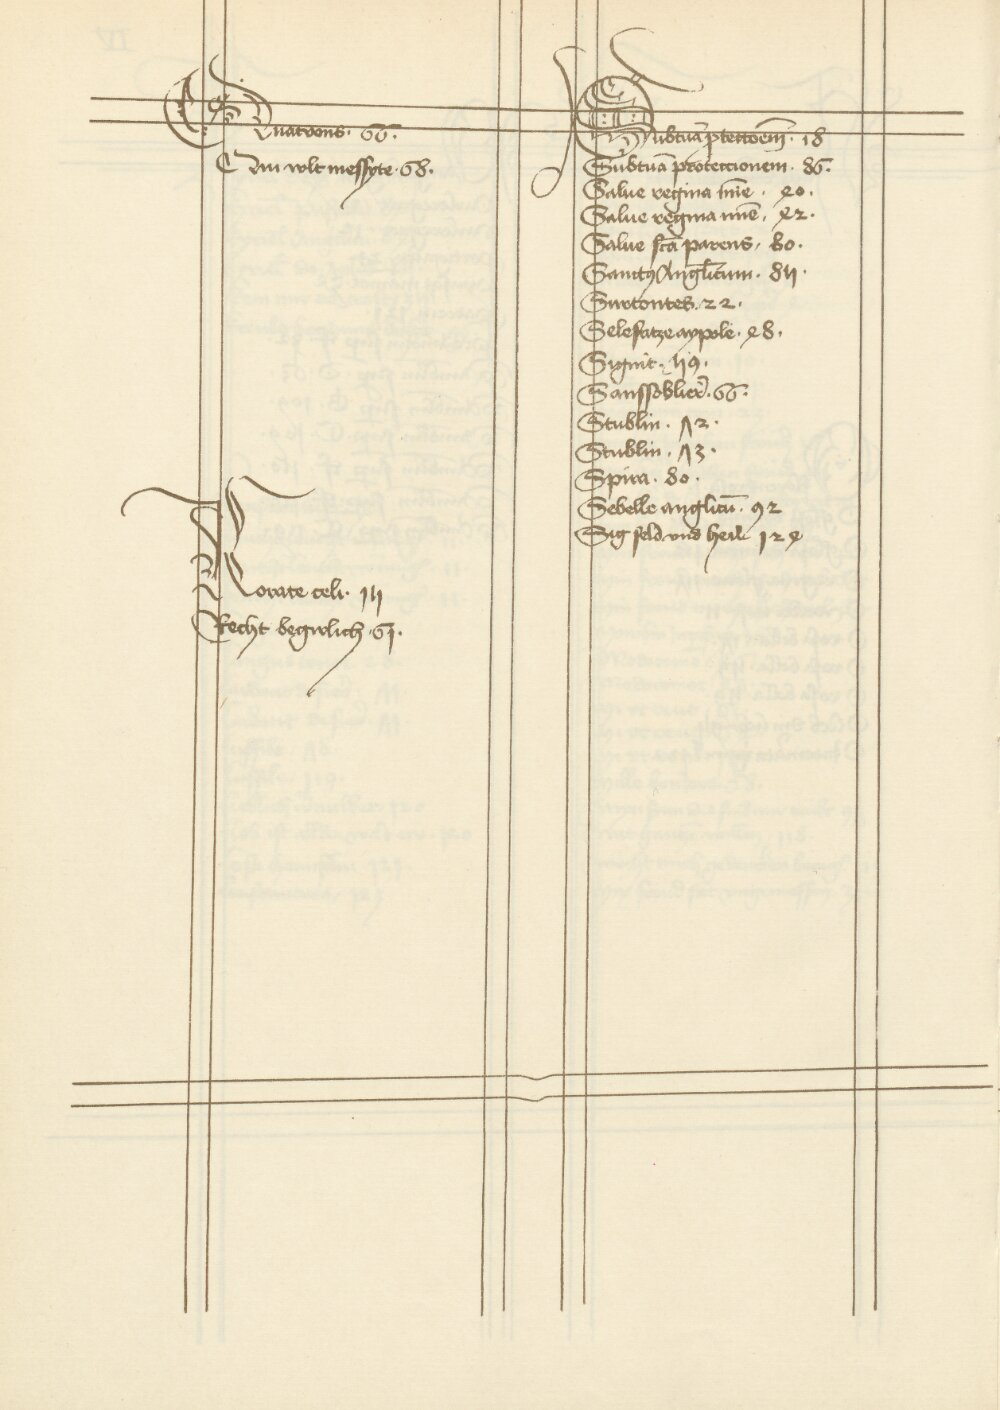 Quatrons · 66 ·
Qui wlt messyte · 68 ·
Rorate celi · 14
Recht begirlich · 61 ·
Subtuā ptectoem̄ · 18
Subtuā proteccionem · 86 ·
Salue regina mīe · 40 ·
Salue regina mīe · 42 ·
Salue sc̄a parens · 80 ·
Sanctꝰ Anglicum · 84 ·
Surtontes · 22 ·
Selefatze aypole · 48 ·
Signit · 49 ·
Sanssoblier · 66 ·
Stublin · 72 ·
Stublin · 73 ·
Spira · 80 ·
Sebelle anglicū · 92
Sig seld vnd heil 124